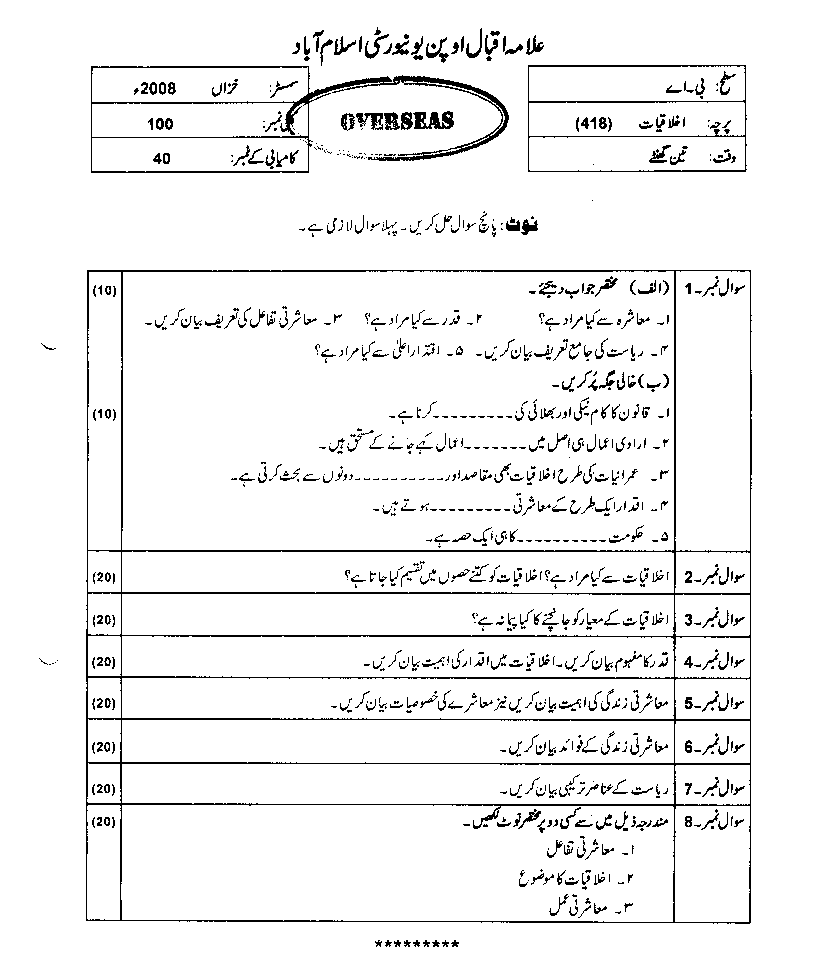 علامہ اقبال اوپن یونیورسٹی اسلام آباد
سطح: بی۔اے
پرچہ: اخلاقیات (418)
وقت: تین گھنٹے
OVERSEAS
سمسٹر: خزاں 2008ء
کل نمبر: 100
کامیابی کے نمبر: 40
نوٹ: پانچ سوال حل کریں۔ پہلا سوال لازمی ہے۔
سوال نمبر۔1 (الف) مختصر جواب دیجئے۔ (10)
۱۔ معاشرہ سے کیا مراد ہے؟ ۲۔ قدر سے کیا مراد ہے؟ ۳۔ معاشرتی تفاعل کی تعریف بیان کریں۔
۴۔ ریاست کی جامع تعریف بیان کریں۔ ۵۔ اقتدار اعلیٰ سے کیا مراد ہے؟
(ب) خالی جگہ پُر کریں۔
۱۔ قانون کا کام نیکی اور بھلائی کی ---------کرنا ہے۔ (10)
۲۔ ارادی اعمال ہی اصل میں -------اعمال کہے جانے کے مستحق ہیں۔
۳۔ عمرانیات کی طرح اخلاقیات بھی مقاصد اور ----------دونوں سے بحث کرتی ہے۔
۴۔ اقدار ایک طرح کے معاشرتی ---------ہوتے ہیں۔
۵۔ حکومت ----------کا ہی ایک حصہ ہے۔
سوال نمبر۔2 اخلاقیات سے کیا مراد ہے؟ اخلاقیات کو کتنے حصوں میں تقسیم کیا جاتا ہے؟ (20)
سوال نمبر۔3 اخلاقیات کے معیار کو جانچنے کا کیا پیمانہ ہے؟ (20)
سوال نمبر۔4 قدر کا مفہوم بیان کریں۔ اخلاقیات میں اقدار کی اہمیت بیان کریں۔ (20)
سوال نمبر۔5 معاشرتی زندگی کی اہمیت بیان کریں نیز معاشرے کی خصوصیات بیان کریں۔ (20)
سوال نمبر۔6 معاشرتی زندگی کے فوائد بیان کریں۔ (20)
سوال نمبر۔7 ریاست کے عناصر ترکیبی بیان کریں۔ (20)
سوال نمبر۔8 مندرجہ ذیل میں سے کسی دو پر مختصر نوٹ لکھیں۔ (20)
۱۔ معاشرتی تفاعل
۲۔ اخلاقیات کا موضوع
۳۔ معاشرتی عمل
*********